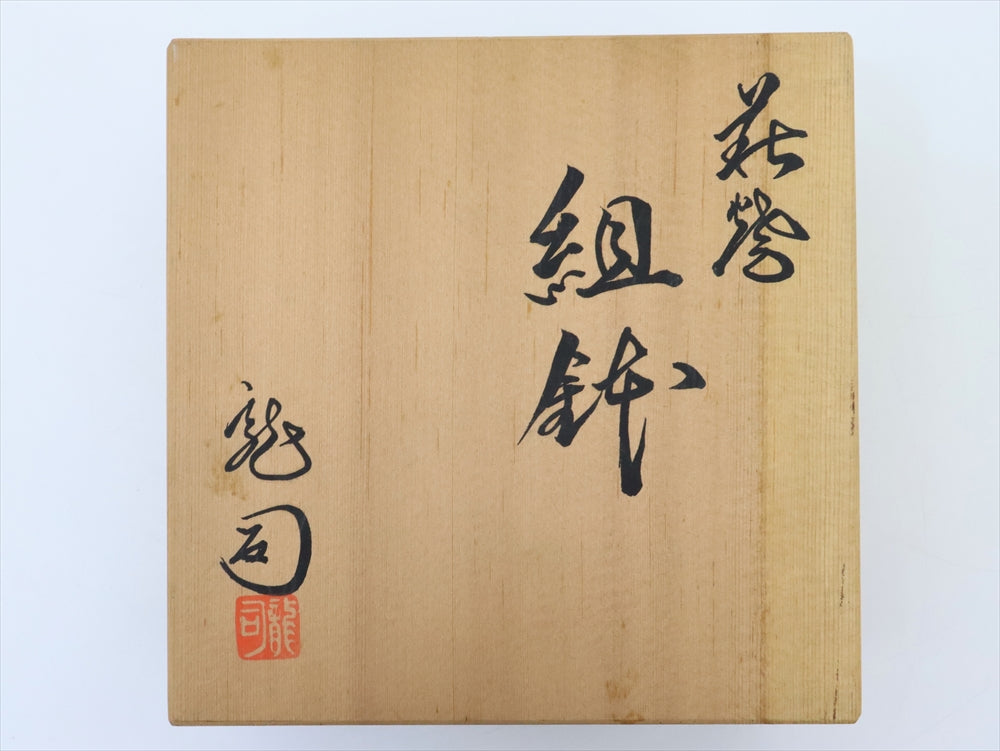 萩焼
組鉢
龍司
龍司